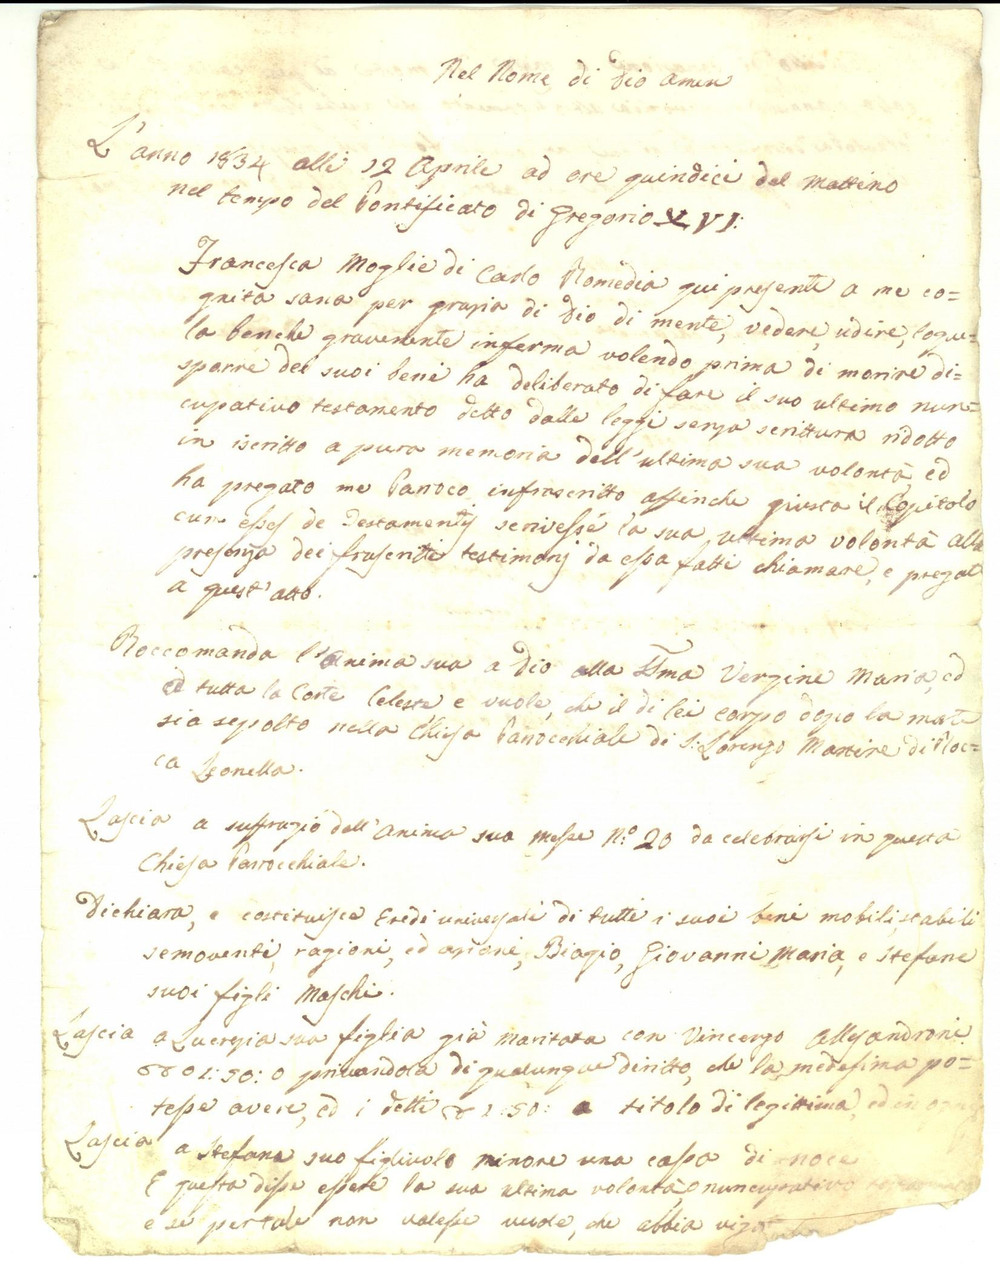 Nel Nome di Dio Amen
L'anno 1834 alli 12 Aprile ad ore quindici del Mattino
nel tempo del Pontificato di Gregorio XVI:
Francesca Moglie di Carlo Romedia qui presente a me co=
gnita sana per grazia di Dio di mente, vedere, udire, loque=
la benche gravemente inferma volendo prima di morire di=
sporre dei suoi beni ha deliberato di fare il suo ultimo nun=
cupativo testamento detto dalle leggi senza scrittura ridotto
in iscritto a pura memoria dell'ultima sua volontà ed
ha pregato me Paroco infrascritto affinche giusta il Capitolo
cum esses de Testamentis scrivesse la sua ultima volontà alla
presenza dei frascritti testimonj da essa fatti chiamare, e pregati
a quest'atto.
Raccomanda l'Anima sua a Dio alla SSma Vergine Maria, ed
a tutta la Corte Celeste e vuole, che il di lei corpo dopo la morte
sia sepolto nella Chiesa Parocchiale di S: Lorenzo Martire di Roc=
ca Leonella.
Lascia a suffragio dell'anima sua Messe N.º 20 da celebrarsi in questa
Chiesa Parrocchiale.
Dichiara, e costituisce Eredi universali di tutti i suoi beni mobili, stabili
semoventi, ragioni, ed azioni, Biagio, Giovanni Maria, e Stefano
suoi figli Maschi.
Lascia a Lucrezia sua figlia già maritata con Vincenzo Allesandroni
1:50:0 privandola di qualunque diritto, che la medesima po=
tesse avere, ed i detti 1:50: a titolo di legittima, ed in ogni
Lascia a Stefano suo figliuolo minore una cassa di noce
E questa disse essere la sua ultima volontà nuncupativo
e se per tale non valesse vuole, che abbia